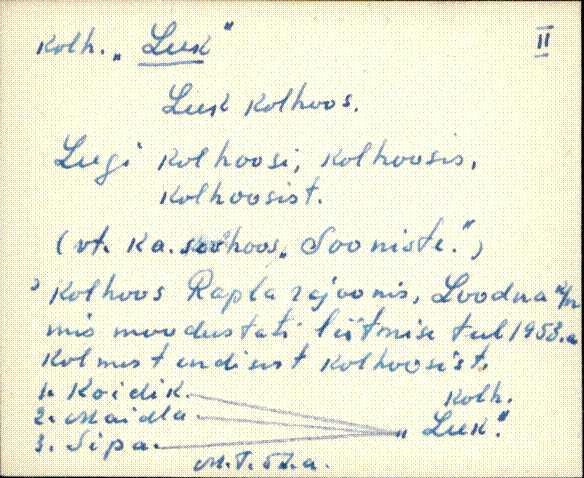 Kolh. „Luk" II
Luk Kolhoos.
Lugi Kolhoosi, Kolhoosis,
Kolhoosist.
(vt. Ka. sovhoos „Sooniste.")
Kolhoos Rapla rajoonis, Loodna K/n
mis moodustati liitmise teel 1953.a
Kolmest endisest Kolhoosist.
1. Koidik. Kolh.
2. Maidla. „Luk."
3. Sipa.
M.T. 57.a.